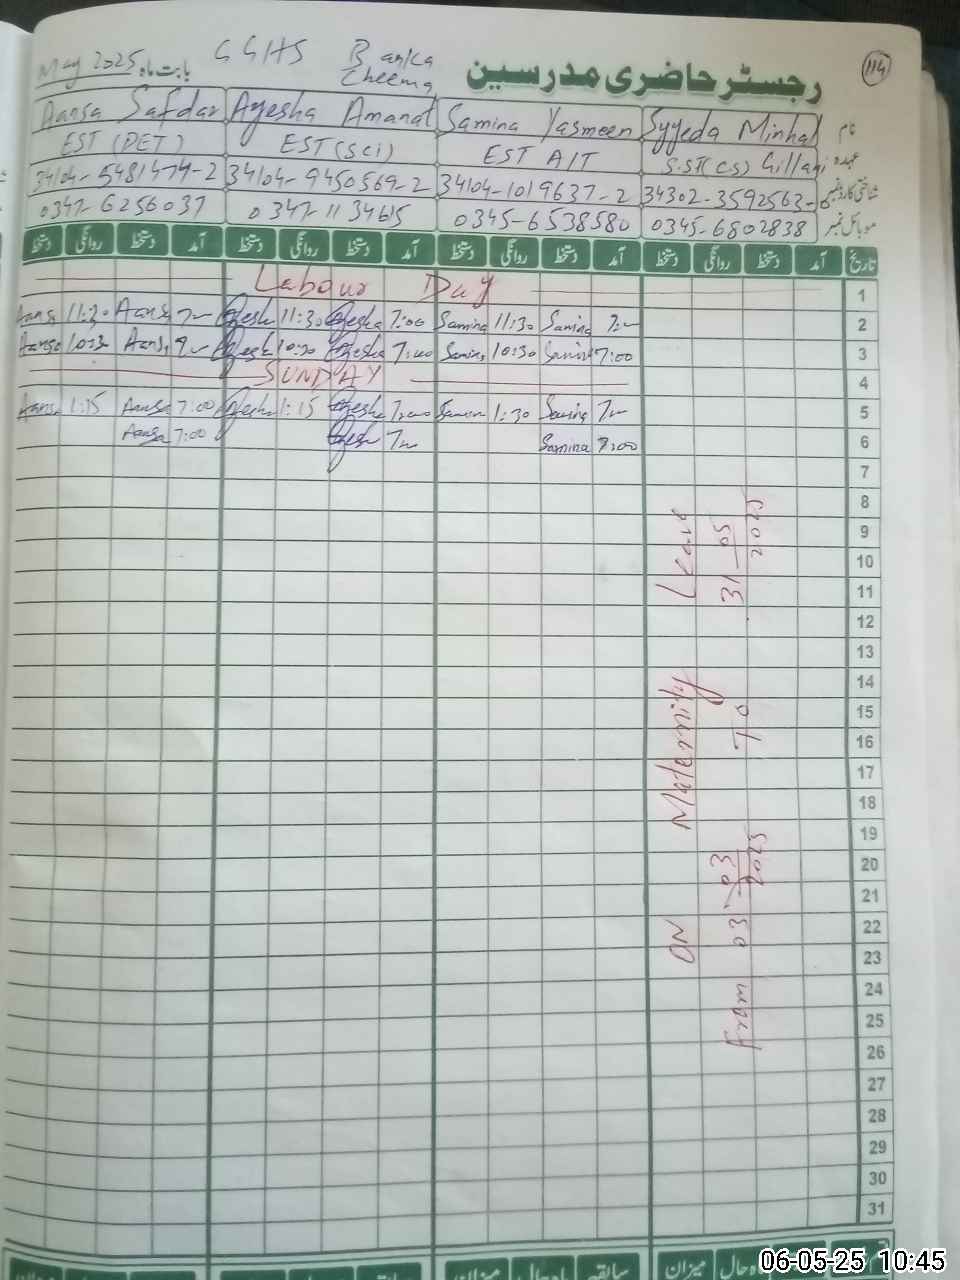 May 2025 بابت ماہ GGHS Banka Cheema رجسٹر حاضری مدرسین 114
Aansa Safdar Ayesha Amanat Samina Yasmeen Syyeda Minhal نام
EST (PET) EST (SCI) EST AIT S.ST (CS) Gillani عہدہ
34104-5481474-2 34104-9450569-2 34104-1019637-2 34302-3592563-6 شناختی کارڈ نمبر
0347-6256037 0347-1134615 0345-6538580 0345-6802838 موبائل نمبر
دستخط روانگی دستخط آمد دستخط روانگی دستخط آمد دستخط روانگی دستخط آمد دستخط روانگی دستخط آمد تاریخ
Labour Day 1
Aansa 11:30 Aansa Ayesha 11:30 Ayesha 7:00 Samina 11:30 Samina 2
Aansa 10:30 Aansa Ayesha 10:30 Ayesha 7:00 Samina 10:30 Samina 7:00 3
SUNDAY 4
Aansa 1:15 Aansa 7:00 Ayesha 1:15 Ayesha 7:00 Samina 1:30 Samina 5
Aansa 7:00 Ayesha Samina 7:00 6
7
8
9
10
11
12
13
14
15
16
17
18
19
20
21
22
23
24
25
26
27
28
29
30
31
ON Maternity Leave
From 03-03-2025 To 31-05-2025
میزان سابقہ میزان
06-05-25 10:45